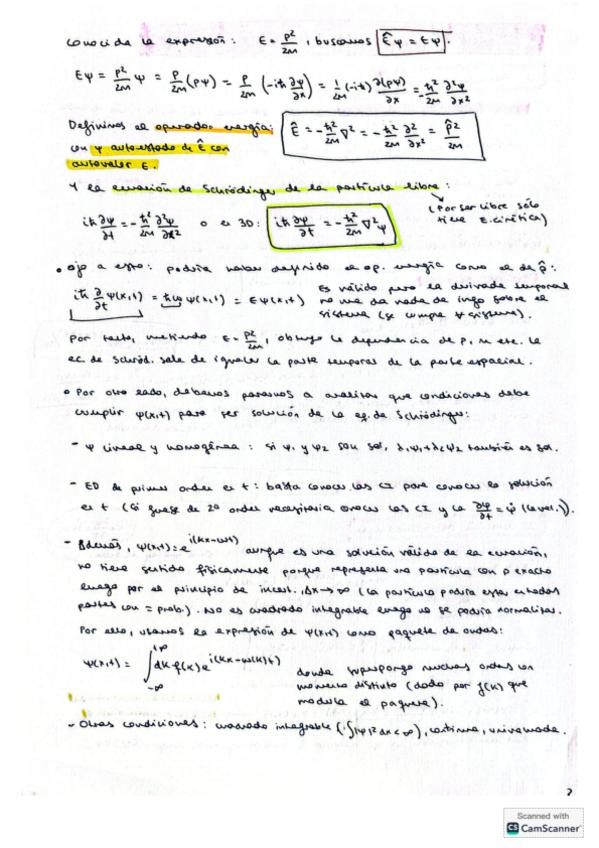 conocida la expresión: E = p²/2m, buscamos Êψ = Eψ.
Eψ = p²/2m ψ = p/2m (pψ) = p/2m (-iħ ∂ψ/∂x) = 1/2m (-iħ) ∂(pψ)/∂x = -ħ²/2m ∂²ψ/∂x²
Definimos el operador energía:
con ψ autoestado de Ê con
autovalor E.
Ê = -ħ²/2m ∇² = -ħ²/2m ∂²/∂x² = p̂²/2m
Y la ecuación de Schrödinger de la partícula libre:
(Por ser libre sólo
tiene E. cinética)
iħ ∂ψ/∂t = -ħ²/2m ∂²ψ/∂x² o en 3D: iħ ∂ψ/∂t = -ħ²/2m ∇²ψ
• Ojo a esto: podría haber definido el op. energía como el de p̂:
iħ ∂/∂t ψ(x,t) = ħω ψ(x,t) = E ψ(x,t)
Es válido pero la derivada temporal
no me da nada de info sobre el
sistema (se cumple ∀ sistema).
Por tanto, metiendo E = p²/2m, obtengo la dependencia de p, m etc. La
ec. de Schröd. sale de igualar la parte temporal de la parte espacial.
• Por otro lado, debemos pararnos a analizar que condiciones debe
cumplir ψ(x,t) para ser solución de la eq. de Schrödinger:
- ψ lineal y homogénea: si ψ₁ y ψ₂ son sol, λ₁ψ₁+λ₂ψ₂ también es sol.
- ED de primer orden en t: basta conocer las CI para conocer la solución
en t (Si fuese de 2º orden necesitaría conocer las CI y la ∂ψ/∂t = ψ̇ (la vel.)).
- Además, ψ(x,t) = e^i(kx-ωt) aunque es una solución válida de la ecuación,
no tiene sentido físicamente porque representa una partícula con p exacto
luego por el principio de incert. Δx→∞ (la partícula podría estar en todas
partes con = prob.). No es cuadrado integrable luego no se podría normalizar.
Por ello, usamos la expresión de ψ(x,t) como paquete de ondas:
ψ(x,t) = ∫_{-∞}^{+∞} dk f(k) e^i(kx-ω(k)t)
donde superpongo muchas ondas con
momento distinto (dado por f(k) que
modula el paquete).
- Otras condiciones: cuadrado integrable (∫|ψ|²dx < ∞), continua, univaluada.
2
Scanned with
CS CamScanner